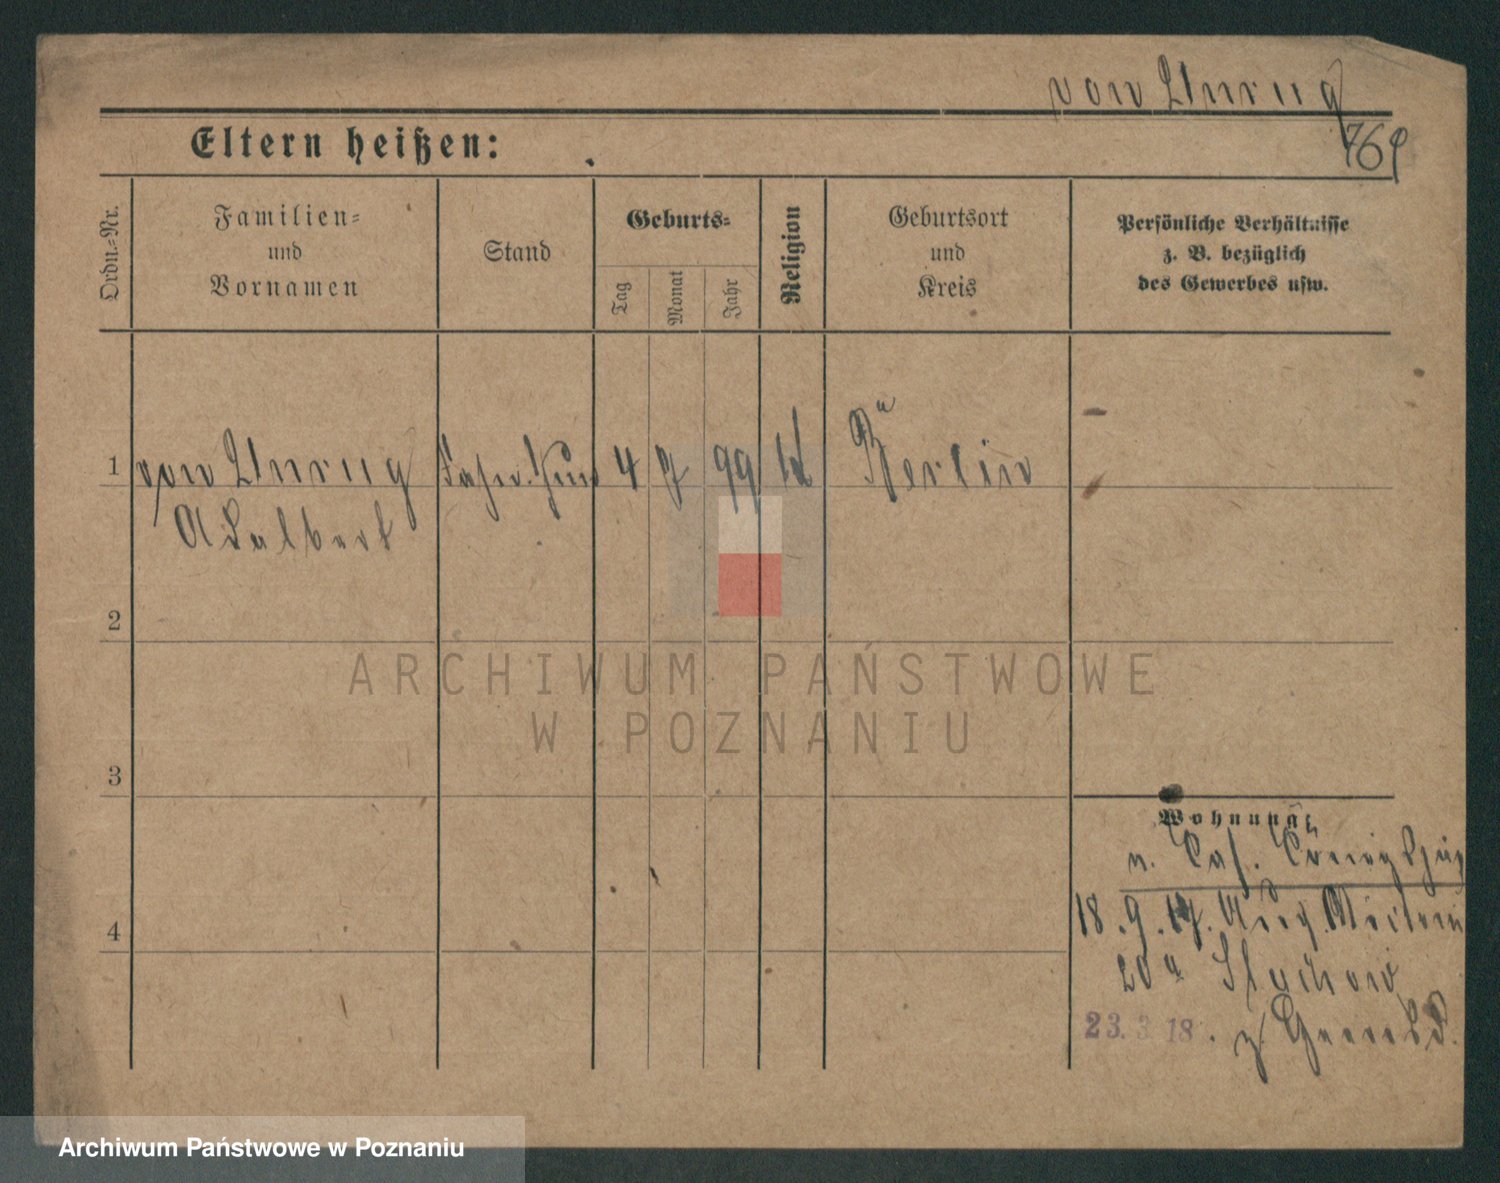 von Unrug
769
Eltern heißen:
Ordn.-Nr.
Familien-
und
Vornamen
Stand
Geburts-
Tag
Monat
Jahr
Religion
Geburtsort
und
Kreis
Persönliche Verhältnisse
z. B. bezüglich
des Gewerbes usw.
1
von Unrug
Adalbert
4 7 99 k
Berlin
2
3
4
Wohnung
v.
18.9.17. Aug. Victoria
20 a
23.3.18. z.
ARCHIWUM PAŃSTWOWE
W POZNANIU
Archiwum Państwowe w Poznaniu